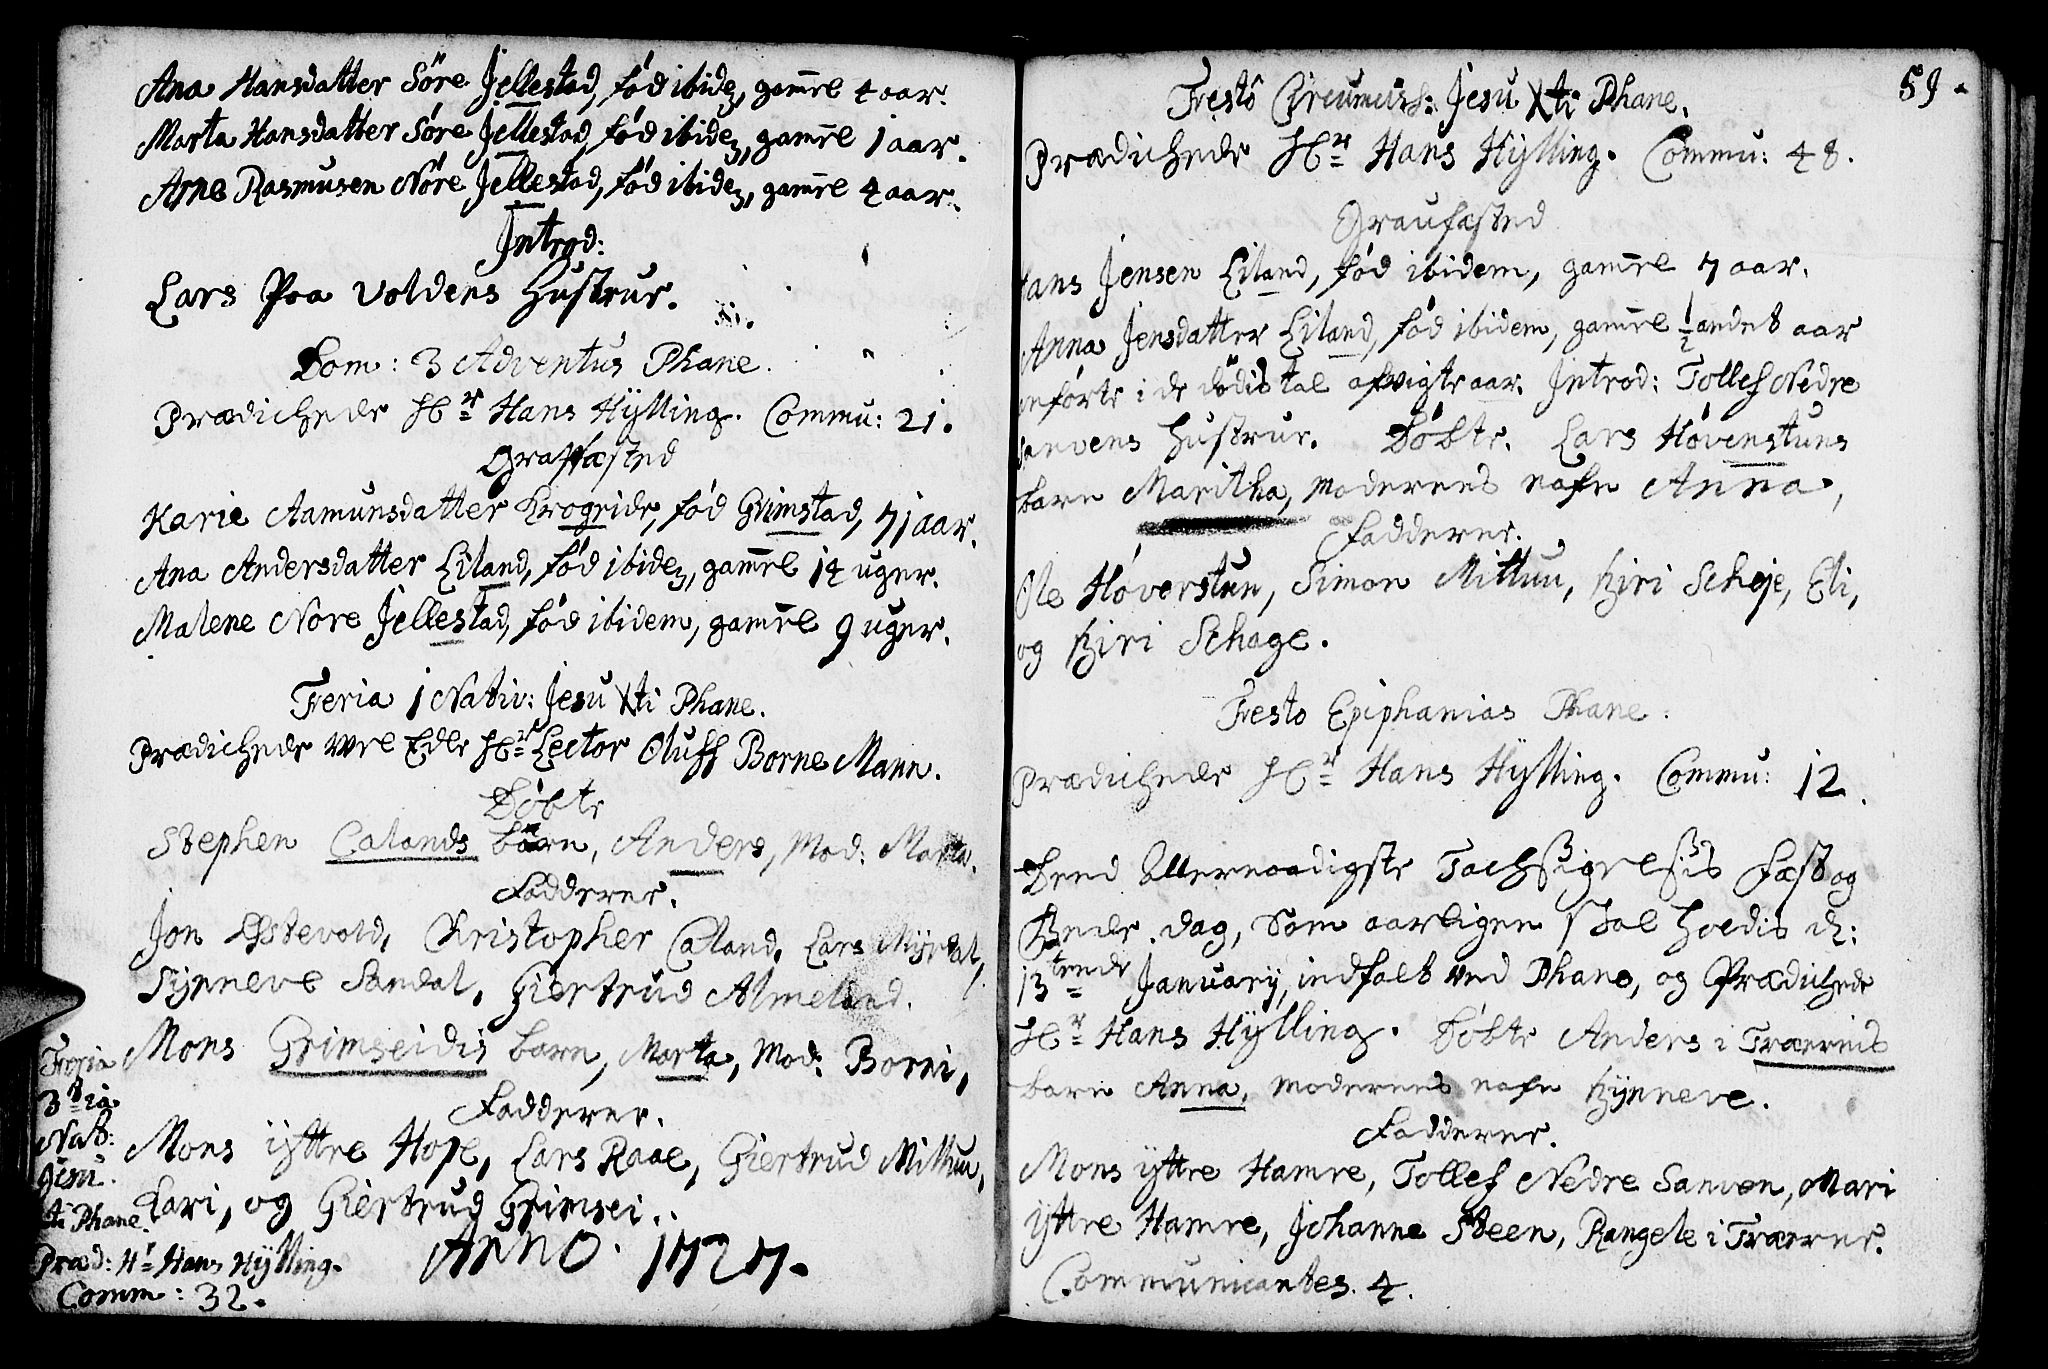 Ana Hansdatter Söre Jellestad, fód ibidē, gam̄el 4 aar.
Marta Hansdatter Sóre Jellestad, fód ibidē, gam̄el 1 aar.
Arne Rasmusen Nóre Jellestad, fód ibidē, gam̄el 4 aar.
Introd:
Lars Paa Voldens Hustrue.
Dom: 3 Adventus Phane.
Prædichede Hr Hans Hÿlling. Commu: 21.
Graffæsted
Karie Aamunsdatter Krogeide, fód Grimstad, 71 aar.
Ana Andersdatter Liland, fód ibidē, gam̄el 14 uger.
Malene Nore Jellestad, fód ibidem, gam̄el 9 uger.
Feria 1 Nativ: Jesu Xti Phane.
Prædichede Vel Edle Hr Lector Oluff Borneman̄.
Dóbte
Stephen Calands barn, Anders, Mod: Marta.
Fadderer.
Jon Ÿstevold, Christopher Caland, Lars Mÿrdal,
Sÿnneve Sandal, Giertrud Almeland.
Mons Grimseidis barn, Marta, Mod: Borni,
Fadderer.
Mons ÿttre Hope, Lars Raae, Giertrud Mittun,
Kari, og Giertrud Grimsei.
Feria
3tia
Nat:
Jesu
Xti Phane.
Præd: Hr Hans Hÿlling.
Comm: 32.
Anno 1727.
59.
Festo Circumcis: Jesu Xti Phane.
Prædichede Hr Hans Hÿlling. Commu: 48.
Graufæsted
Hans Jensen Liland, fód ibidem, gam̄el 7 aar.
Anna Jensdatter Liland, fód ibidem, gam̄el ½ andet aar
infórte i de dódis tal afvigte aar. Introd: Tollef Nedre
Sanvens Hustrue. Dóbte. Lars Hóvenstuns
barn Maritha, Moderens nafn Anna,
Fadderer.
Ole Hóverstun, Simon Mittun, Siri Scheje, Eli,
og Siri Schage.
Festo Epiphanias Phane.
Prædichede Hr Hans Hÿlling. Commu: 12.
Dend Allernaadigste Tachsigelsis Fæst og
Bede dag, som aarligen skal holdis d:
13tende Januarÿ, indfalt ved Phane, og Prædichede
Hr Hans Hÿlling. Dóbte Anders i Træernes
barn Anna, Moderens nafn Sÿnneve.
Fadderer.
Mons ÿttre Hamre, Tollef Nedre Sanven, Mari
ÿttre Hamre, Johanne Steen, Rangele i Træerne.
Communicantes. 4.